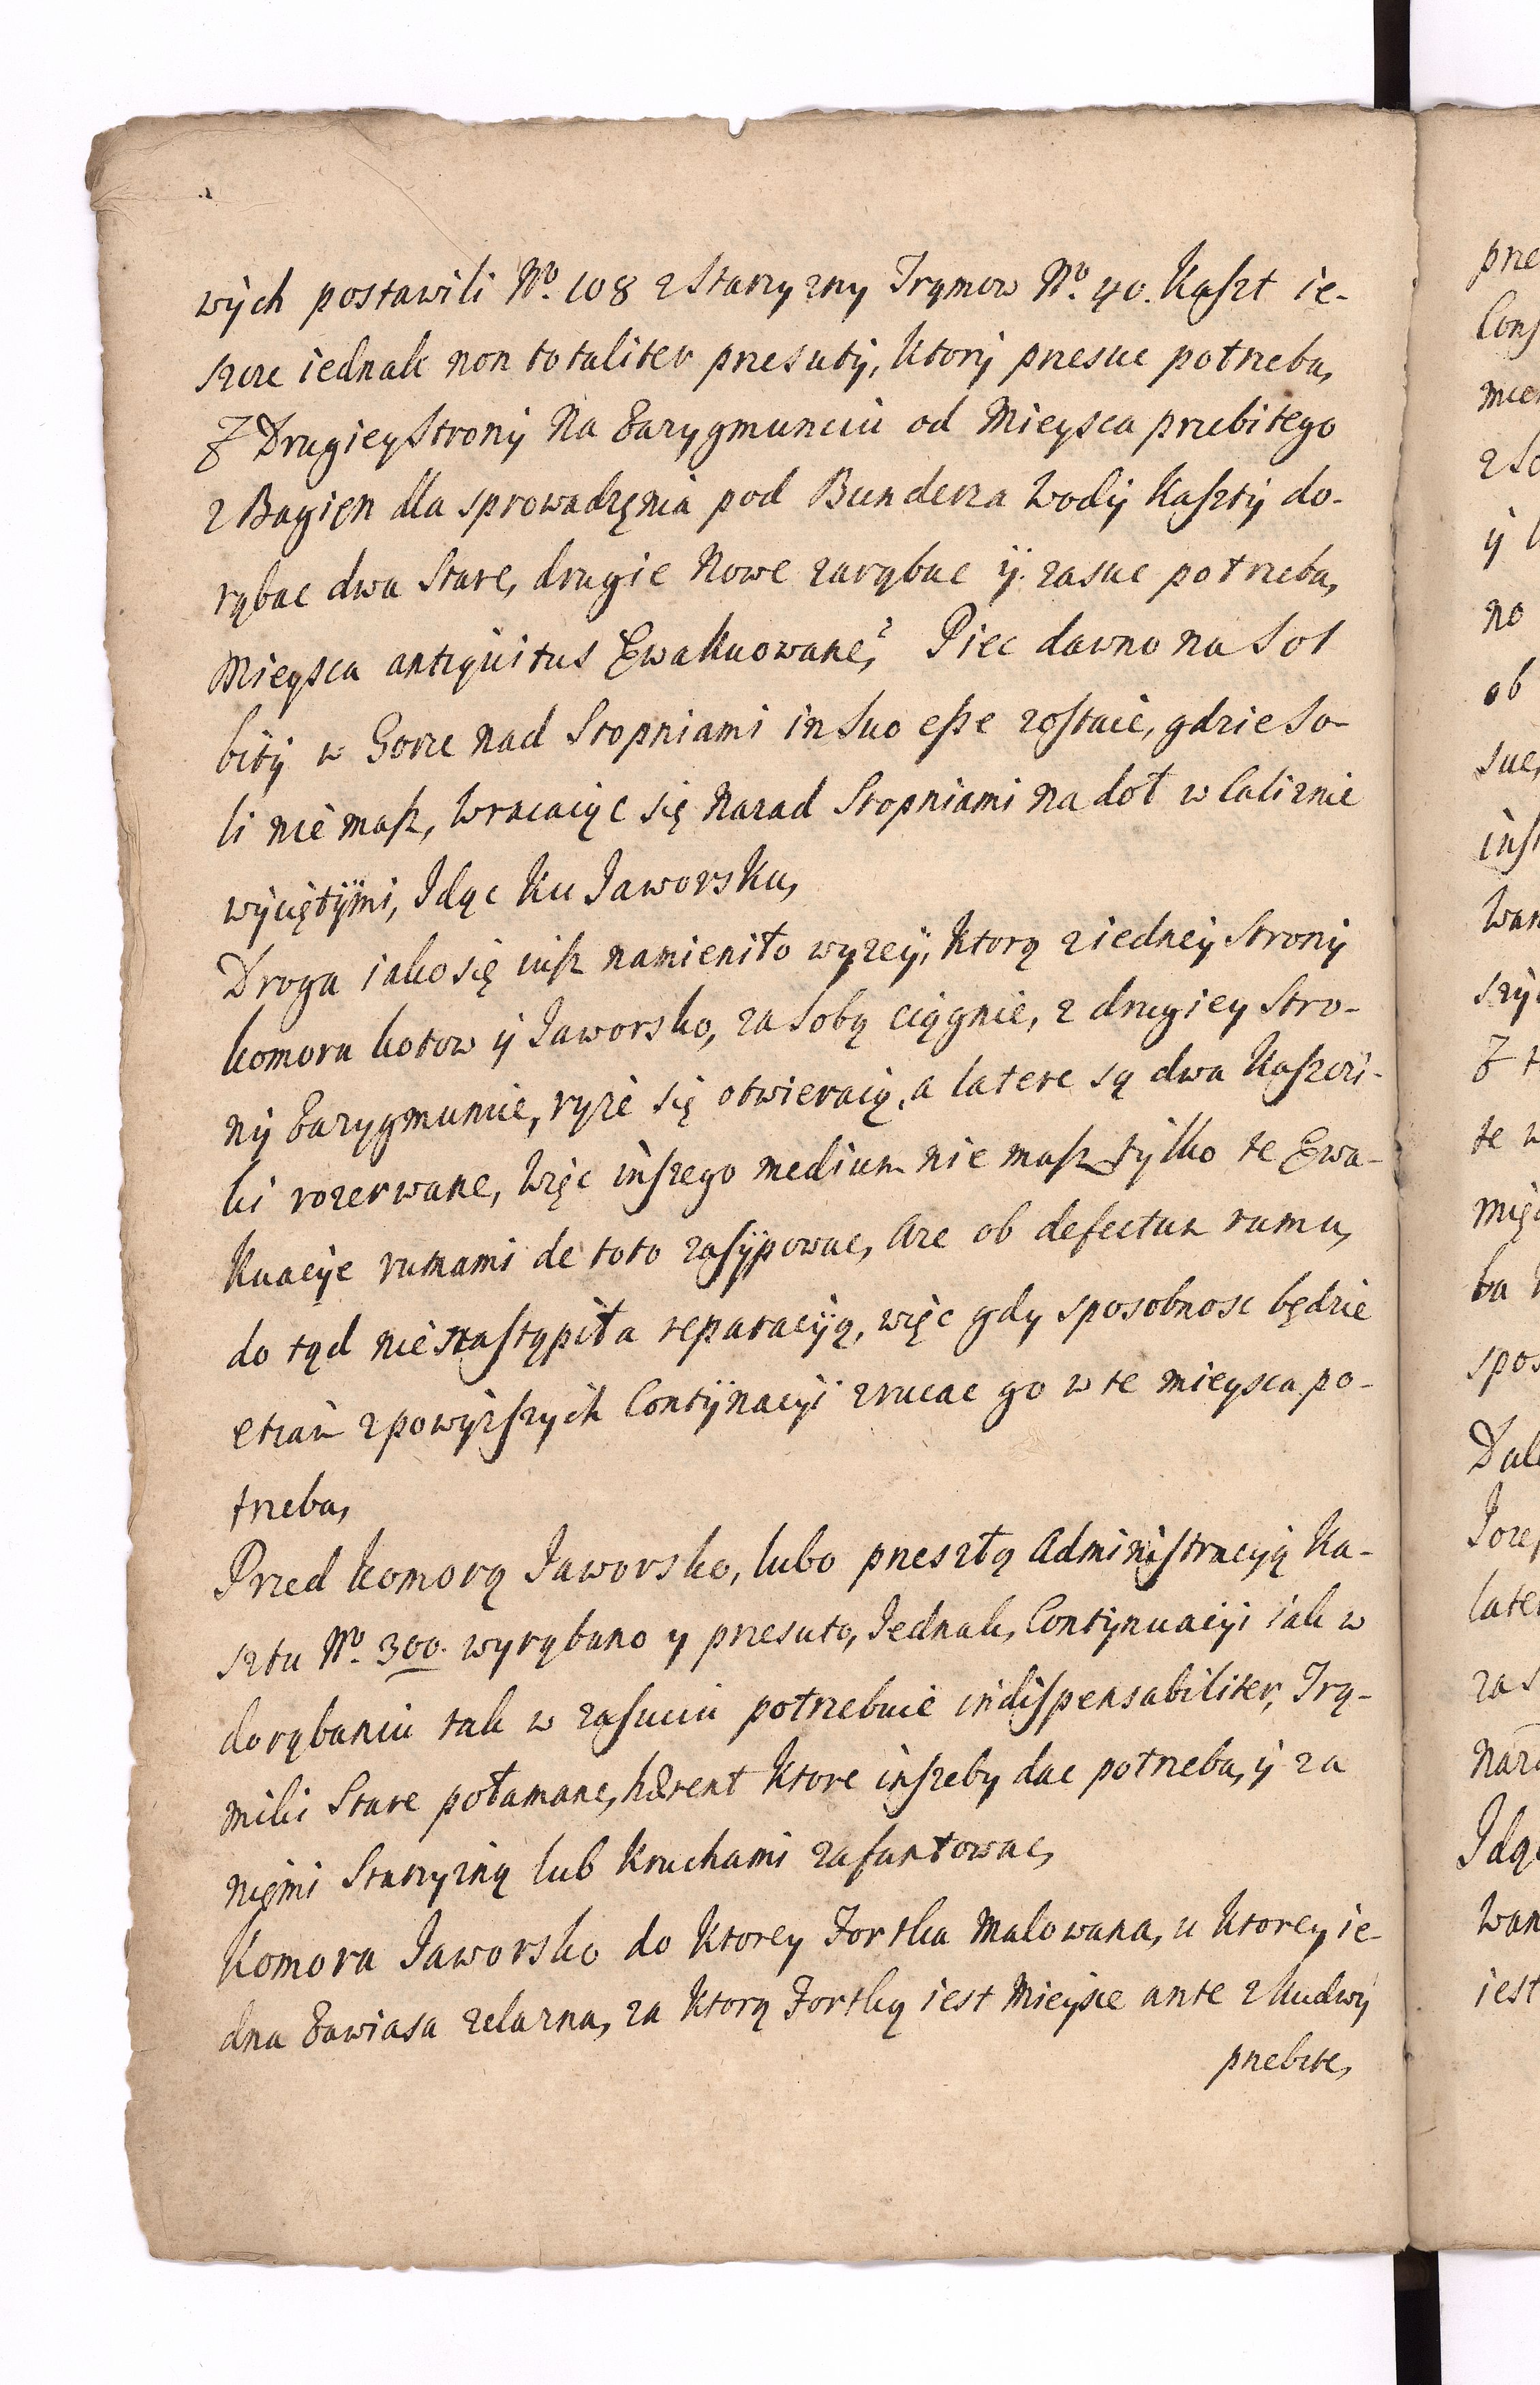 wÿch postawili No. 108 z Starzyzny Trąmow No. 40. Kaszt ie-
szcze iednak non totaliter przesutÿ, Ktorÿ przesuc potrzeba,
Z Drugiey Stronÿ Na Zarygmunciu od Mieysca przebitego
z Bagięn dla sprowadzęnia pod Bunderza Wodÿ Kasztÿ do-
rąbac dwa Stare, drugie Nowe zarąbac ÿ zasuc potrzeba,
Mieysca antiquitus Ewakuowane, Piec dawno na Sol
bitÿ w Gorze nad Stopniami in Suo esse zostaie, gdzie So-
li nie masz, Wracaiąc się Nazad Stopniami na doł w Caliznie
wÿciętÿmi, Idąc Ku Jaworsku,
Droga iako się iusz namieniło wyzeÿ, Ktorą z iedneÿ Stronÿ
komora kotow ÿ Jaworsko, za Sobą ciągnie, z drugiey Stro-
nÿ Zarygmuncie, ryze się otwieraią, a latere są dwa Kaszci-
ki rozerwane, Więc inszego medium nie masz tÿlko te Ewa-
Kuacÿe rumami de toto zasÿpowac, Aze ob defectum rumu,
do tąd nie nastąpiła reparacÿą, więc gdy sposobnosc będzie
etiam z powÿzszych Contÿnacÿi zrucac go w te mieysca po-
trzeba,
Przed komorą Jaworsko, lubo przeszłą Administracyią Ka-
sztu No. 300. wyrąbano y przesuto, Jednak, Contÿnuacÿi iak w
dorąbaniu tak w zasuciu potrzebuie indispensabiliter, Trą-
miki Stare połamane, hærent Ktore inszeby dac potrzeba, ÿ za
nięmi Starzyzną lub Kruchami zafantowac,
Komora Jaworsko do Ktorey Fortka Malowana, u Ktorey ie-
dna Zawiasa zelazna, za Ktorą Fortką iest Mieysce ante z Kudwÿ
przebite,
prze
Cons
z
ÿ
no
ob
suc,
inst
Wan
szÿ
Z
te
mię
ba
spos
Dale
Joze
later
zas
Naza
Idąc
Wan
iest